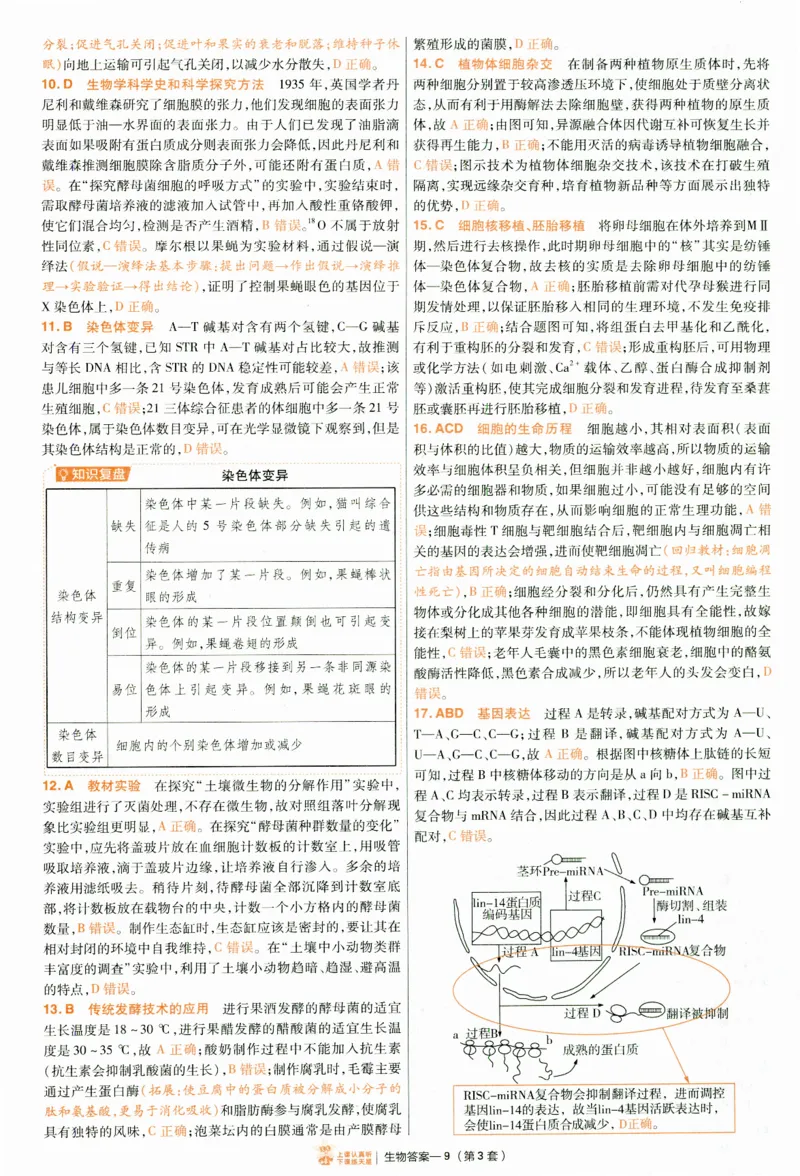 分裂;促进气孔关闭;促进叶和果实的衰老和脱落;维持种子休
眠)向地上运输可引起气孔关闭,以减少水分散失,D 正确。
10. D 生物学科学史和科学探究方法 1935 年,英国学者丹
尼利和戴维森研究了细胞膜的张力,他们发现细胞的表面张力
明显低于油—水界面的表面张力。由于人们已发现了油脂滴
表面如果吸附有蛋白质成分则表面张力会降低,因此丹尼利和
戴维森推测细胞膜除含脂质分子外,可能还附有蛋白质,A 错
误。在“探究酵母菌细胞的呼吸方式”的实验中,实验结束时,
需取酵母菌培养液的滤液加入试管中,再加入酸性重铬酸钾,
使它们混合均匀,检测是否产生酒精,B 错误。¹⁸O 不属于放射
性同位素,C 错误。摩尔根以果蝇为实验材料,通过假说—演
绎法(假说—演绎法基本步骤:提出问题→作出假说→演绎推
理→实验验证→得出结论),证明了控制果蝇眼色的基因位于
X 染色体上,D 正确。
11. B 染色体变异 A—T 碱基对含有两个氢键,C—G 碱基
对含有三个氢键,已知 STR 中 A—T 碱基对占比较大,故推测
与等长 DNA 相比,含 STR 的 DNA 稳定性可能较差,A 错误;该
患儿细胞中多一条 21 号染色体,发育成熟后可能会产生正常
生殖细胞,C 错误;21 三体综合征患者的体细胞中多一条 21 号
染色体,属于染色体数目变异,可在光学显微镜下观察到,但是
其染色体结构是正常的,D 错误。
知识复盘 染色体变异
染色体
结构变异
缺失
染色体中某一片段缺失。例如,猫叫综合
征是人的 5 号染色体部分缺失引起的遗
传病
重复
染色体增加了某一片段。例如,果蝇棒状
眼的形成
倒位
染色体的某一片段位置颠倒也可引起变
异。例如,果蝇卷翅的形成
易位
染色体的某一片段移接到另一条非同源染
色体上引起变异。例如,果蝇花斑眼的
形成
染色体
数目变异
细胞内的个别染色体增加或减少
12. A 教材实验 在探究“土壤微生物的分解作用”实验中,
实验组进行了灭菌处理,不存在微生物,故对照组落叶分解现
象比实验组更明显,A 正确。在探究“酵母菌种群数量的变化”
实验中,应先将盖玻片放在血细胞计数板的计数室上,用吸管
吸取培养液,滴于盖玻片边缘,让培养液自行渗入。多余的培
养液用滤纸吸去。稍待片刻,待酵母菌全部沉降到计数室底
部,将计数板放在载物台的中央,计数一个小方格内的酵母菌
数量,B 错误。制作生态缸时,生态缸应该是密封的,要让其在
相对封闭的环境中自我维持,C 错误。在“土壤中小动物类群
丰富度的调查”实验中,利用了土壤小动物趋暗、趋湿、避高温
的特点,D 错误。
13. B 传统发酵技术的应用 进行果酒发酵的酵母菌的适宜
生长温度是 18 ~ 30 ℃,进行果醋发酵的醋酸菌的适宜生长温
度是 30 ~ 35 ℃,故 A 正确;酸奶制作过程中不能加入抗生素
(抗生素会抑制乳酸菌的生长),B 错误;制作腐乳时,毛霉主要
通过产生蛋白酶(拓展:使豆腐中的蛋白质被分解成小分子的
肽和氨基酸,更易于消化吸收)和脂肪酶参与腐乳发酵,使腐乳
具有独特的风味,C 正确;泡菜坛内的白膜通常是由产膜酵母
繁殖形成的菌膜,D 正确。
14. C 植物体细胞杂交 在制备两种植物原生质体时,先将
两种细胞分别置于较高渗透压环境下,使细胞处于质壁分离状
态,从而有利于用酶解法去除细胞壁,获得两种植物的原生质
体,故 A 正确;由图可知,异源融合体因代谢互补可恢复生长并
获得再生能力,B 正确;不能用灭活的病毒诱导植物细胞融合,
C 错误;图示技术为植物体细胞杂交技术,该技术在打破生殖
隔离,实现远缘杂交育种,培育植物新品种等方面展示出独特
的优势,D 正确。
15. C 细胞核移植、胚胎移植 将卵母细胞在体外培养到MⅡ
期,然后进行去核操作,此时期卵母细胞中的“核”其实是纺锤
体—染色体复合物,故去核的实质是去除卵母细胞中的纺锤
体—染色体复合物,A 正确;胚胎移植前需对代孕母猴进行同
期发情处理,以保证胚胎移入相同的生理环境,不发生免疫排
斥反应,B 正确;结合题图可知,将组蛋白去甲基化和乙酰化,
有利于重构胚的分裂和发育,C 错误;形成重构胚后,可用物理
或化学方法(如电刺激、Ca²⁺ 载体、乙醇、蛋白酶合成抑制剂
等)激活重构胚,使其完成细胞分裂和发育进程,待发育至桑葚
胚或囊胚再进行胚胎移植,D 正确。
16. ACD 细胞的生命历程 细胞越小,其相对表面积(表面
积与体积的比值)越大,物质的运输效率越高,所以物质的运输
效率与细胞体积呈负相关,但细胞并非越小越好,细胞内有许
多必需的细胞器和物质,如果细胞过小,可能没有足够的空间
供这些结构和物质存在,从而影响细胞的正常生理功能,A 错
误;细胞毒性 T 细胞与靶细胞结合后,靶细胞内与细胞凋亡相
关的基因的表达会增强,进而使靶细胞凋亡(回归教材:细胞凋
亡指由基因所决定的细胞自动结束生命的过程,又叫细胞编程
性死亡),B 正确;细胞经分裂和分化后,仍然具有产生完整生
物体或分化成其他各种细胞的潜能,即细胞具有全能性,故嫁
接在梨树上的苹果芽发育成苹果枝条,不能体现植物细胞的全
能性,C 错误;老年人毛囊中的黑色素细胞衰老,细胞中的酪氨
酸酶活性降低,黑色素合成减少,所以老年人的头发会变白,D
错误。
17. ABD 基因表达 过程 A 是转录,碱基配对方式为 A—U、
T—A、G—C、C—G;过程 B 是翻译,碱基配对方式为 A—U、
U—A、G—C、C—G,故 A 正确。根据图中核糖体上肽链的长短
可知,过程 B 中核糖体移动的方向是从 a 向 b,B 正确。图中过
程 A、C 均表示转录,过程 B 表示翻译,过程 D 是 RISC - miRNA
复合物与 mRNA 结合,因此过程 A、B、C、D 中均存在碱基互补
配对,C 错误。
茎环Pre-miRNA
Pre-miRNA
lin-14蛋白质
编码基因
过程C
酶切割、组装
lin-4
过程 A
lin-4基因
RISC-miRNA复合物
过程 D
翻译被抑制
a 过程B
b
成熟的蛋白质
RISC-miRNA复合物会抑制翻译过程，进而调控
基因lin-14的表达，故当lin-4基因活跃表达时，
会使lin-14蛋白质合成减少，D正确。
上课认真听
下课练天星
生物答案— 9（第 3 套）